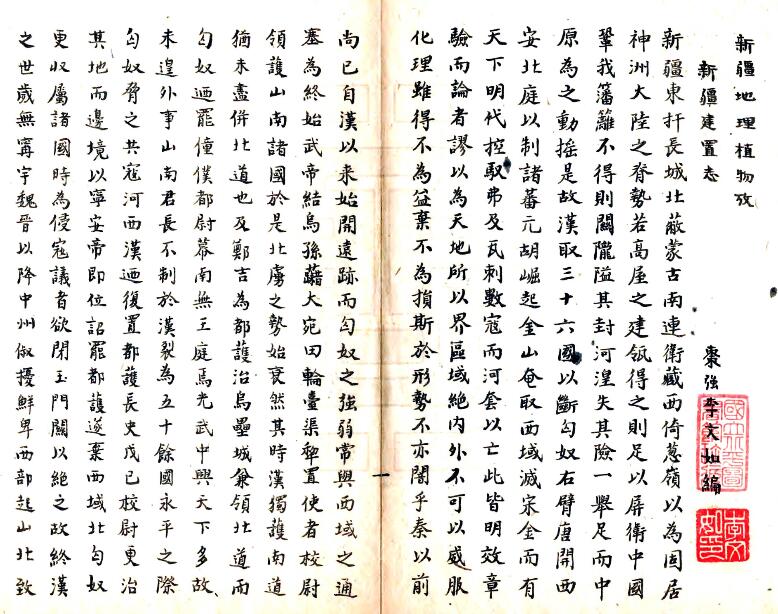 新疆地理植物攷
新疆建置志
棗強李文如編
新疆東扞長城北蔽蒙古南連衛藏西倚蔥嶺以為固居
神洲大陸之脊勢若高屋之建瓴得之則足以屏衛中國
鞏我籓籬不得則關隴隘其封河湟失其險一舉足而中
原為之動搖是故漢取三十六國以斷匈奴右臂唐開西
安北庭以制諸蕃元胡崛起金山奄取西域滅宋金而有
天下明代控馭弗及瓦刺數寇而河套以亡此皆明效章
驗而論者謬以為天地所以界區域絕內外不可以威服
化理雖得不為益棄不為損斯於形勢不亦闇乎秦以前
尚已自漢以來始開遠跡而匈奴之強弱常與西域之通
塞為終始武帝結烏孫蘸大宛田輪臺渠犂置使者校尉
領護山南諸國於是北虜之勢始衰然其時漢獨護南道
猶未盡併北道也及鄭吉為都護治烏壘城兼領北道而
匈奴迺罷僮僕都尉幕南無王庭焉光武中興天下多故
未遑外事山南君長不制於漢裂為五十餘國永平之際
匈奴脅之共寇河西漢迺復置都護長史戊已校尉更治
其地而邊境以寧安帝即位詔罷都護遂棄西域北匈奴
更収屬諸國時為侵寇議者欲閉玉門關以絕之故終漢
之世歲無寗宇魏晉以降中州俶擾鮮卑西部起山北致